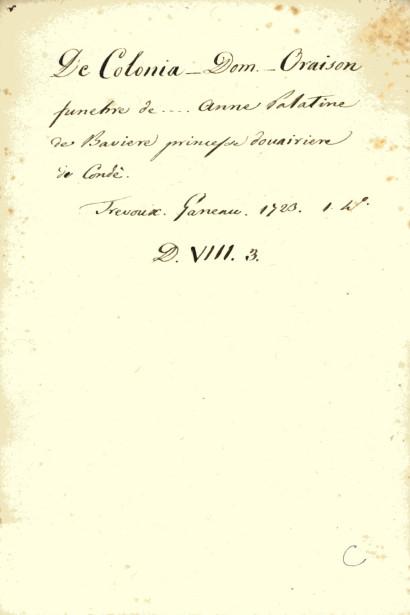 De Colonia - Dom. - Oraison
funebre de .... Anne Palatine
de Baviere princesse douairiere
de Condé.
Trevoux. Ganeau. 1723. 1.
D. VIII. 3.
C